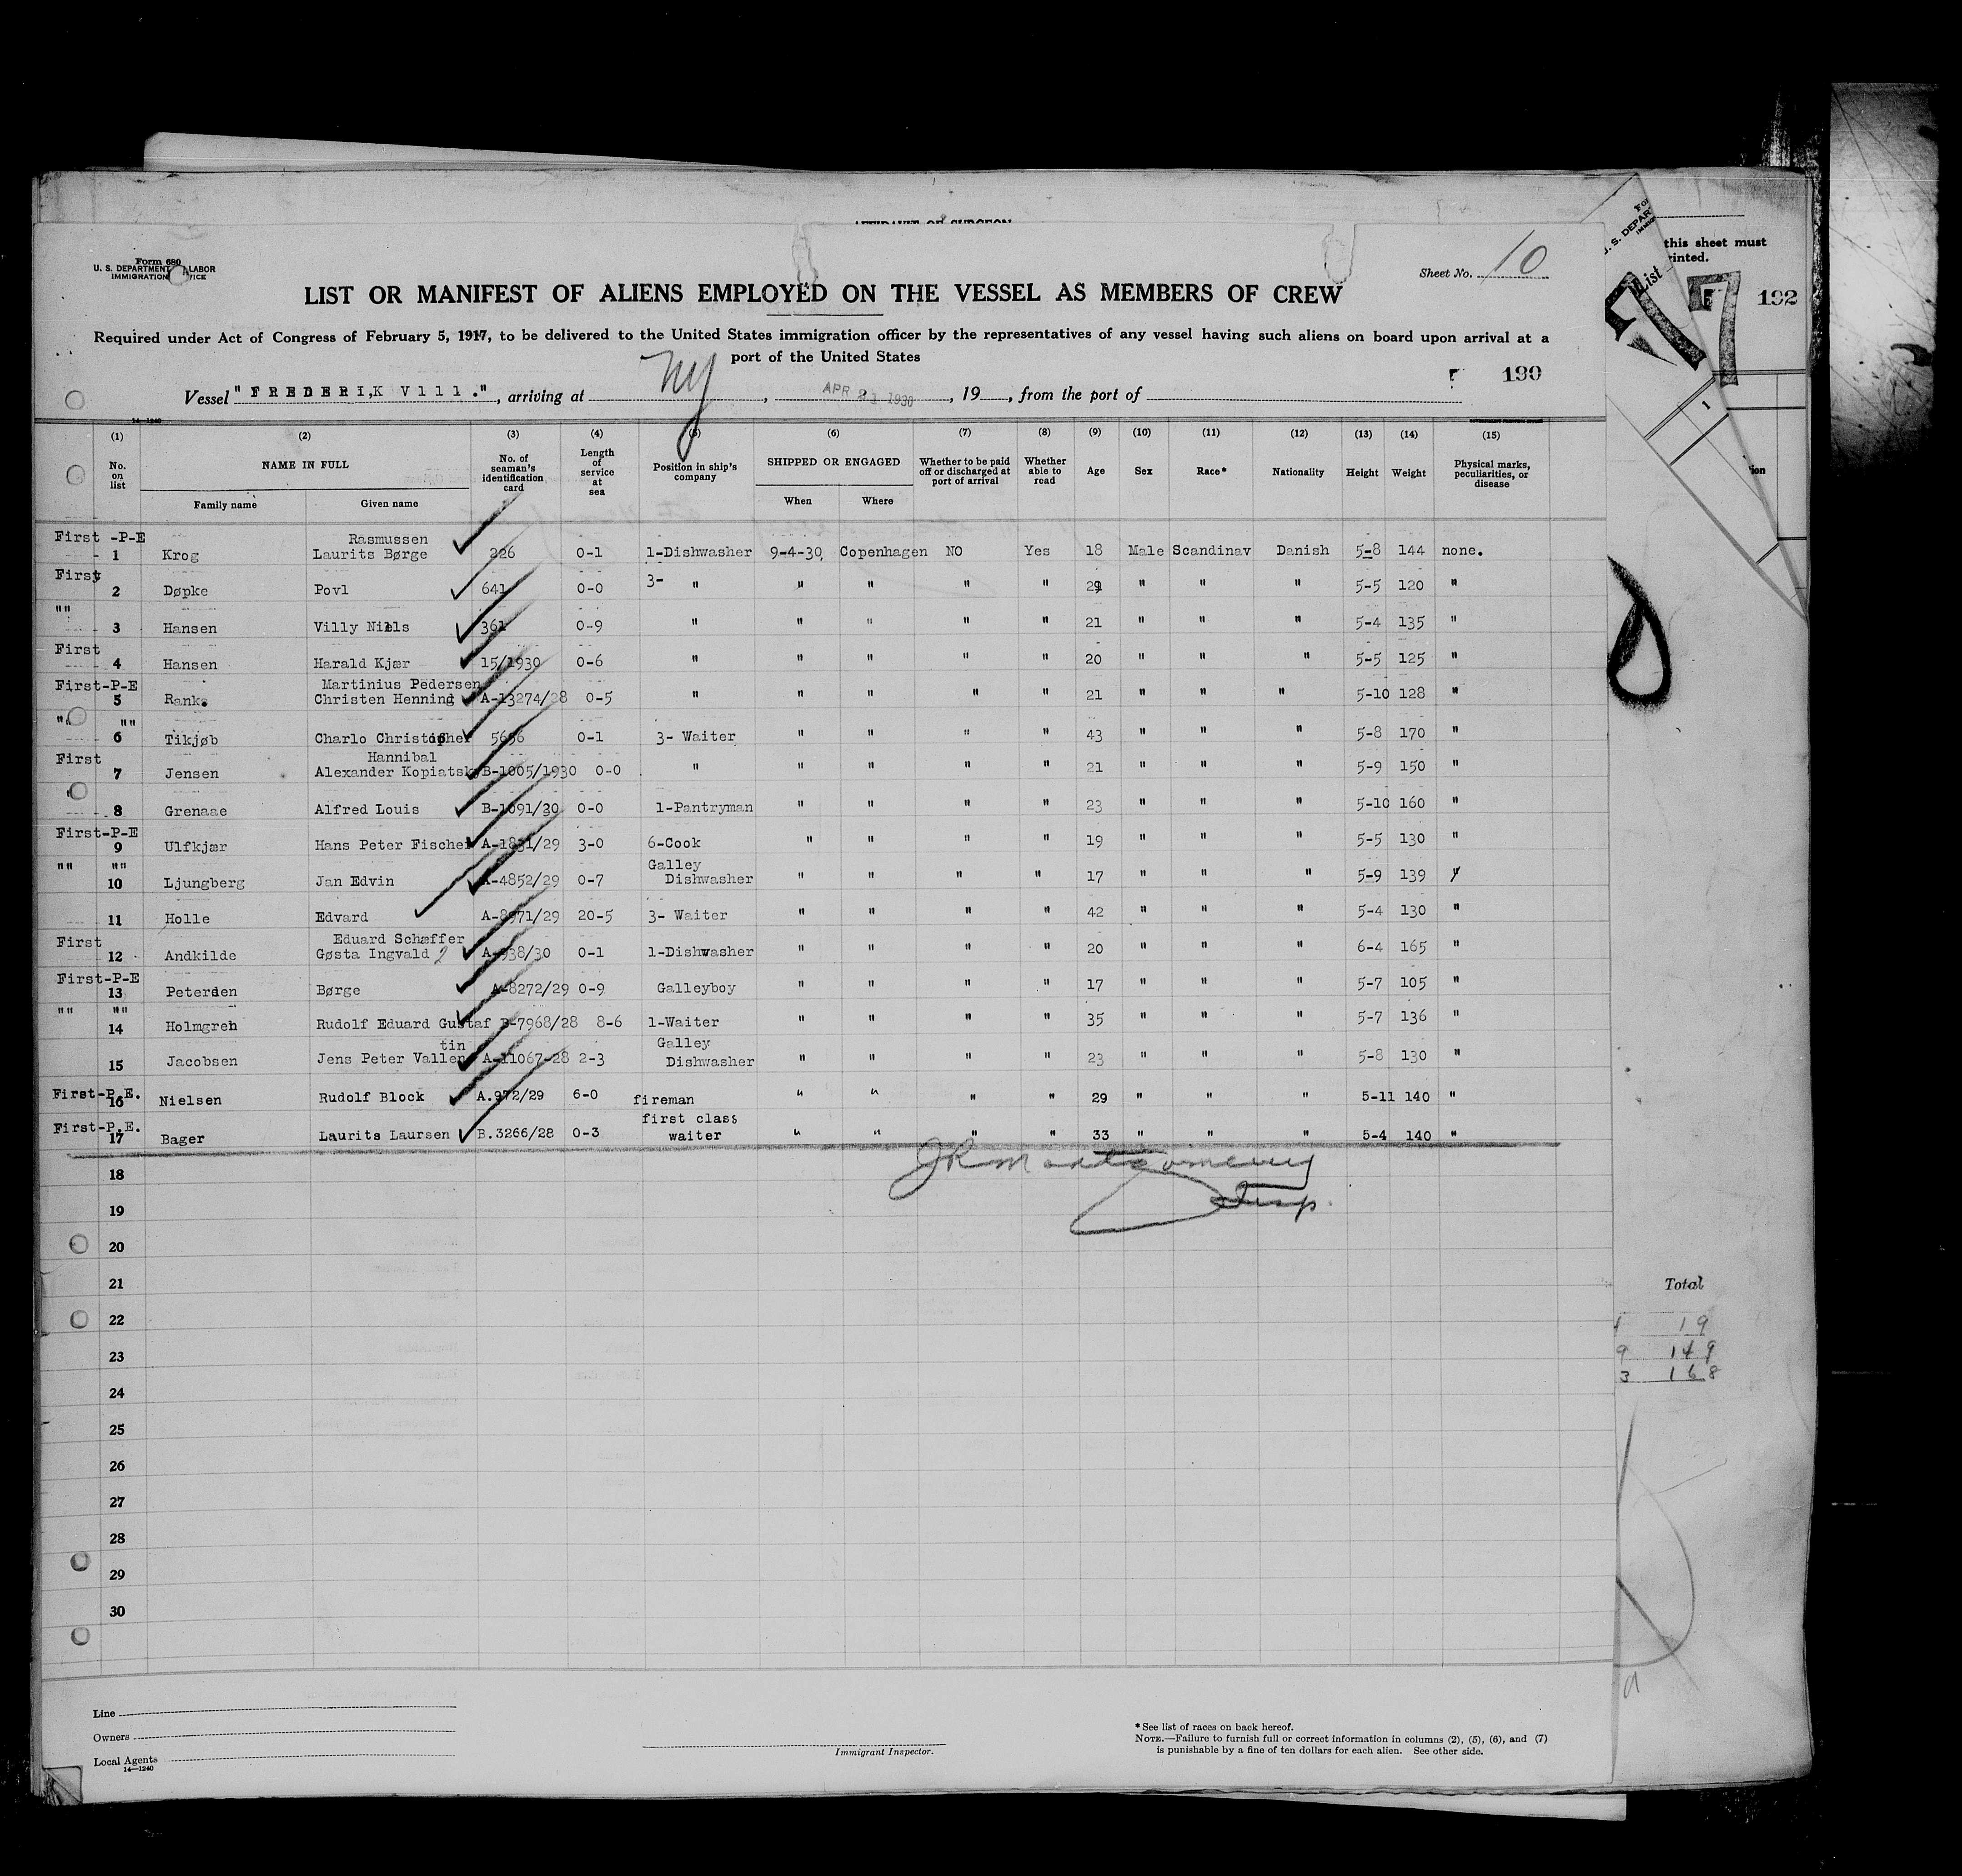 AFFIDAVIT OF SURGEON
Form 680
U. S. DEPARTMENT LABOR
IMMIGRATION VICE
Sheet No. 10
LIST OR MANIFEST OF ALIENS EMPLOYED ON THE VESSEL AS MEMBERS OF CREW
Required under Act of Congress of February 5, 1917, to be delivered to the United States immigration officer by the representatives of any vessel having such aliens on board upon arrival at a
port of the United States
190
Vessel " FREDERIK V111. ", arriving at NY, APR 21 1930, 19, from the port of
14—1240
(1) (2) (3) (4) (5) (6) (7) (8) (9) (10) (11) (12) (13) (14) (15)
No. on list NAME IN FULL Family name Given name No. of seaman's identification card Length of service at sea Position in ship's company SHIPPED OR ENGAGED When Where Whether to be paid off or discharged at port of arrival Whether able to read Age Sex Race* Nationality Height Weight Physical marks, peculiarities, or disease
First -P-E Rasmussen
1 Krog Laurits Børge 226 0-1 1-Dishwasher 9-4-30, Copenhagen NO Yes 18 Male Scandinav Danish 5-8 144 none.
First 3-
2 Døpke Povl 641 0-0 " " " " " 29 " " " 5-5 120 "
" "
3 Hansen Villy Niels 361 0-9 " " " " " 21 " " " 5-4 135 "
First
4 Hansen Harald Kjær 15/1930 0-6 " " " " " 20 " " " 5-5 125 "
First-P-E Martinius Pedersen
5 Rank. Christen Henning A-13274/28 0-5 " " " " " 21 " " " 5-10 128 "
" " " "
6 Tikjøb Charlo Christopher 5656 0-1 3- Waiter " " " " 43 " " " 5-8 170 "
First Hannibal
7 Jensen Alexander Kopiatsky B-1005/1930 0-0 " " " " " 21 " " " 5-9 150 "
"
8 Grenaae Alfred Louis B-1091/30 0-0 1-Pantryman " " " " 23 " " " 5-10 160 "
First-P-E
9 Ulfkjær Hans Peter Fischer A-1831/29 3-0 6-Cook " " " " 19 " " " 5-5 130 "
" " " " Galley
10 Ljungberg Jan Edvin A-4852/29 0-7 Dishwasher " " " " 17 " " " 5-9 139 "
11 Holle Edvard A-8971/29 20-5 3- Waiter " " " " 42 " " " 5-4 130 "
First Eduard Schæffer
12 Andkilde Gøsta Ingvald A-938/30 0-1 1-Dishwasher " " " " 20 " " " 6-4 165 "
First-P-E
13 Petersen Børge A-8272/29 0-9 Galleyboy " " " " 17 " " " 5-7 105 "
" " " "
14 Holmgren Rudolf Eduard Gustaf B-7968/28 8-6 1-Waiter " " " " 35 " " " 5-7 136 "
tin Galley
15 Jacobsen Jens Peter Vallen A-11067-28 2-3 Dishwasher " " " " 23 " " " 5-8 130 "
First-P.E.
16 Nielsen Rudolf Block A.972/29 6-0 fireman " " " " 29 " " " 5-11 140 "
First-P.E. first class
17 Bager Laurits Laursen B.3266/28 0-3 waiter " " " " 33 " " " 5-4 140 "
JR Montgomery
Insp.
18
19
20
21
22
23
24
25
26
27
28
29
30
Line
Owners
Local Agents
14—1240
Immigrant Inspector.
* See list of races on back hereof.
NOTE.—Failure to furnish full or correct information in columns (2), (5), (6), and (7)
is punishable by a fine of ten dollars for each alien. See other side.
this sheet must
rinted.
U. S. DEPAR
List
192
1
Total
19
9 149
3 168